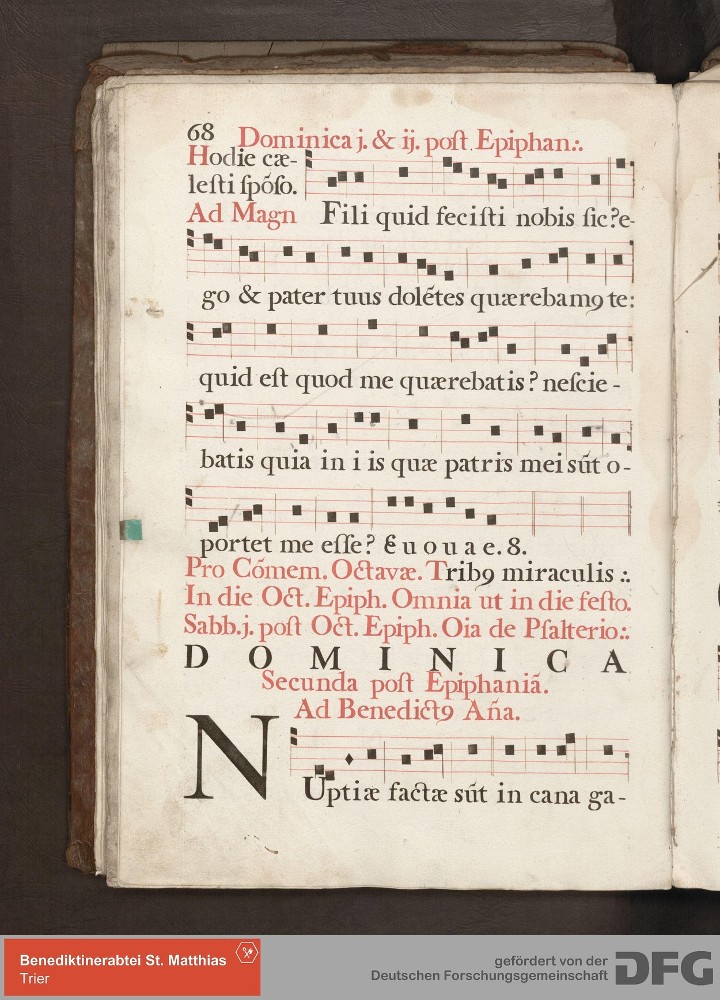 68 Dominica j. & ij. poſt Epiphan∴
Hodie cæ-
leſti ſpõſo.
Ad Magn Fili quid feciſti nobis ſic?e-
go & pater tuus dolẽtes quærebamꝰ te:
quid eſt quod me quærebatis? neſcie-
batis quia in i is quæ patris mei sũt o-
portet me eſſe? Euouae. 8.
Pro Cõmem. Octavæ. Tribꝰ miraculis ∴
In die Oct. Epiph. Omnia ut in die feſto.
Sabb.j. poſt Oct. Epiph. Oia de Pſalterio∴
DOMINICA
Secunda poſt Epiphaniã.
Ad Benedictꝰ Aña.
NUptiæ factæ sũt in cana ga-
Benediktinerabtei St. Matthias
Trier
gefördert von der
Deutschen Forschungsgemeinschaft DFG